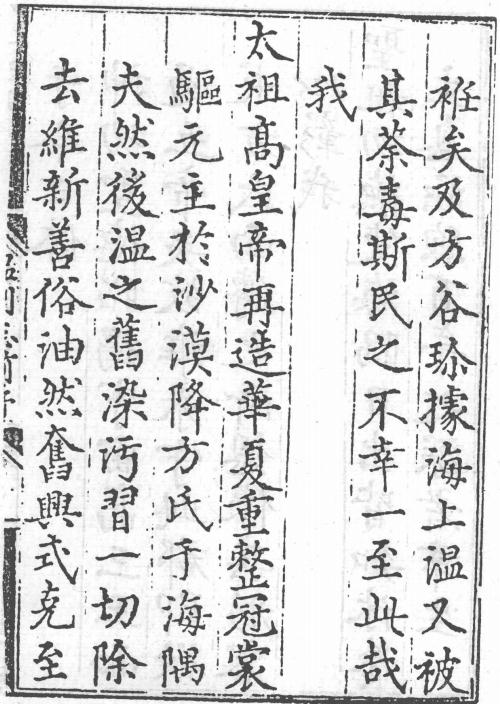 袵矣及方谷珎據海上温又被
其荼毒斯民之不幸一至此哉
我
太祖高皇帝再造華夏重整冠裳
驅元主於沙漠降方氏于海隅
夫然後温之舊染汚習一切除
去維新善俗油然奮興式克至